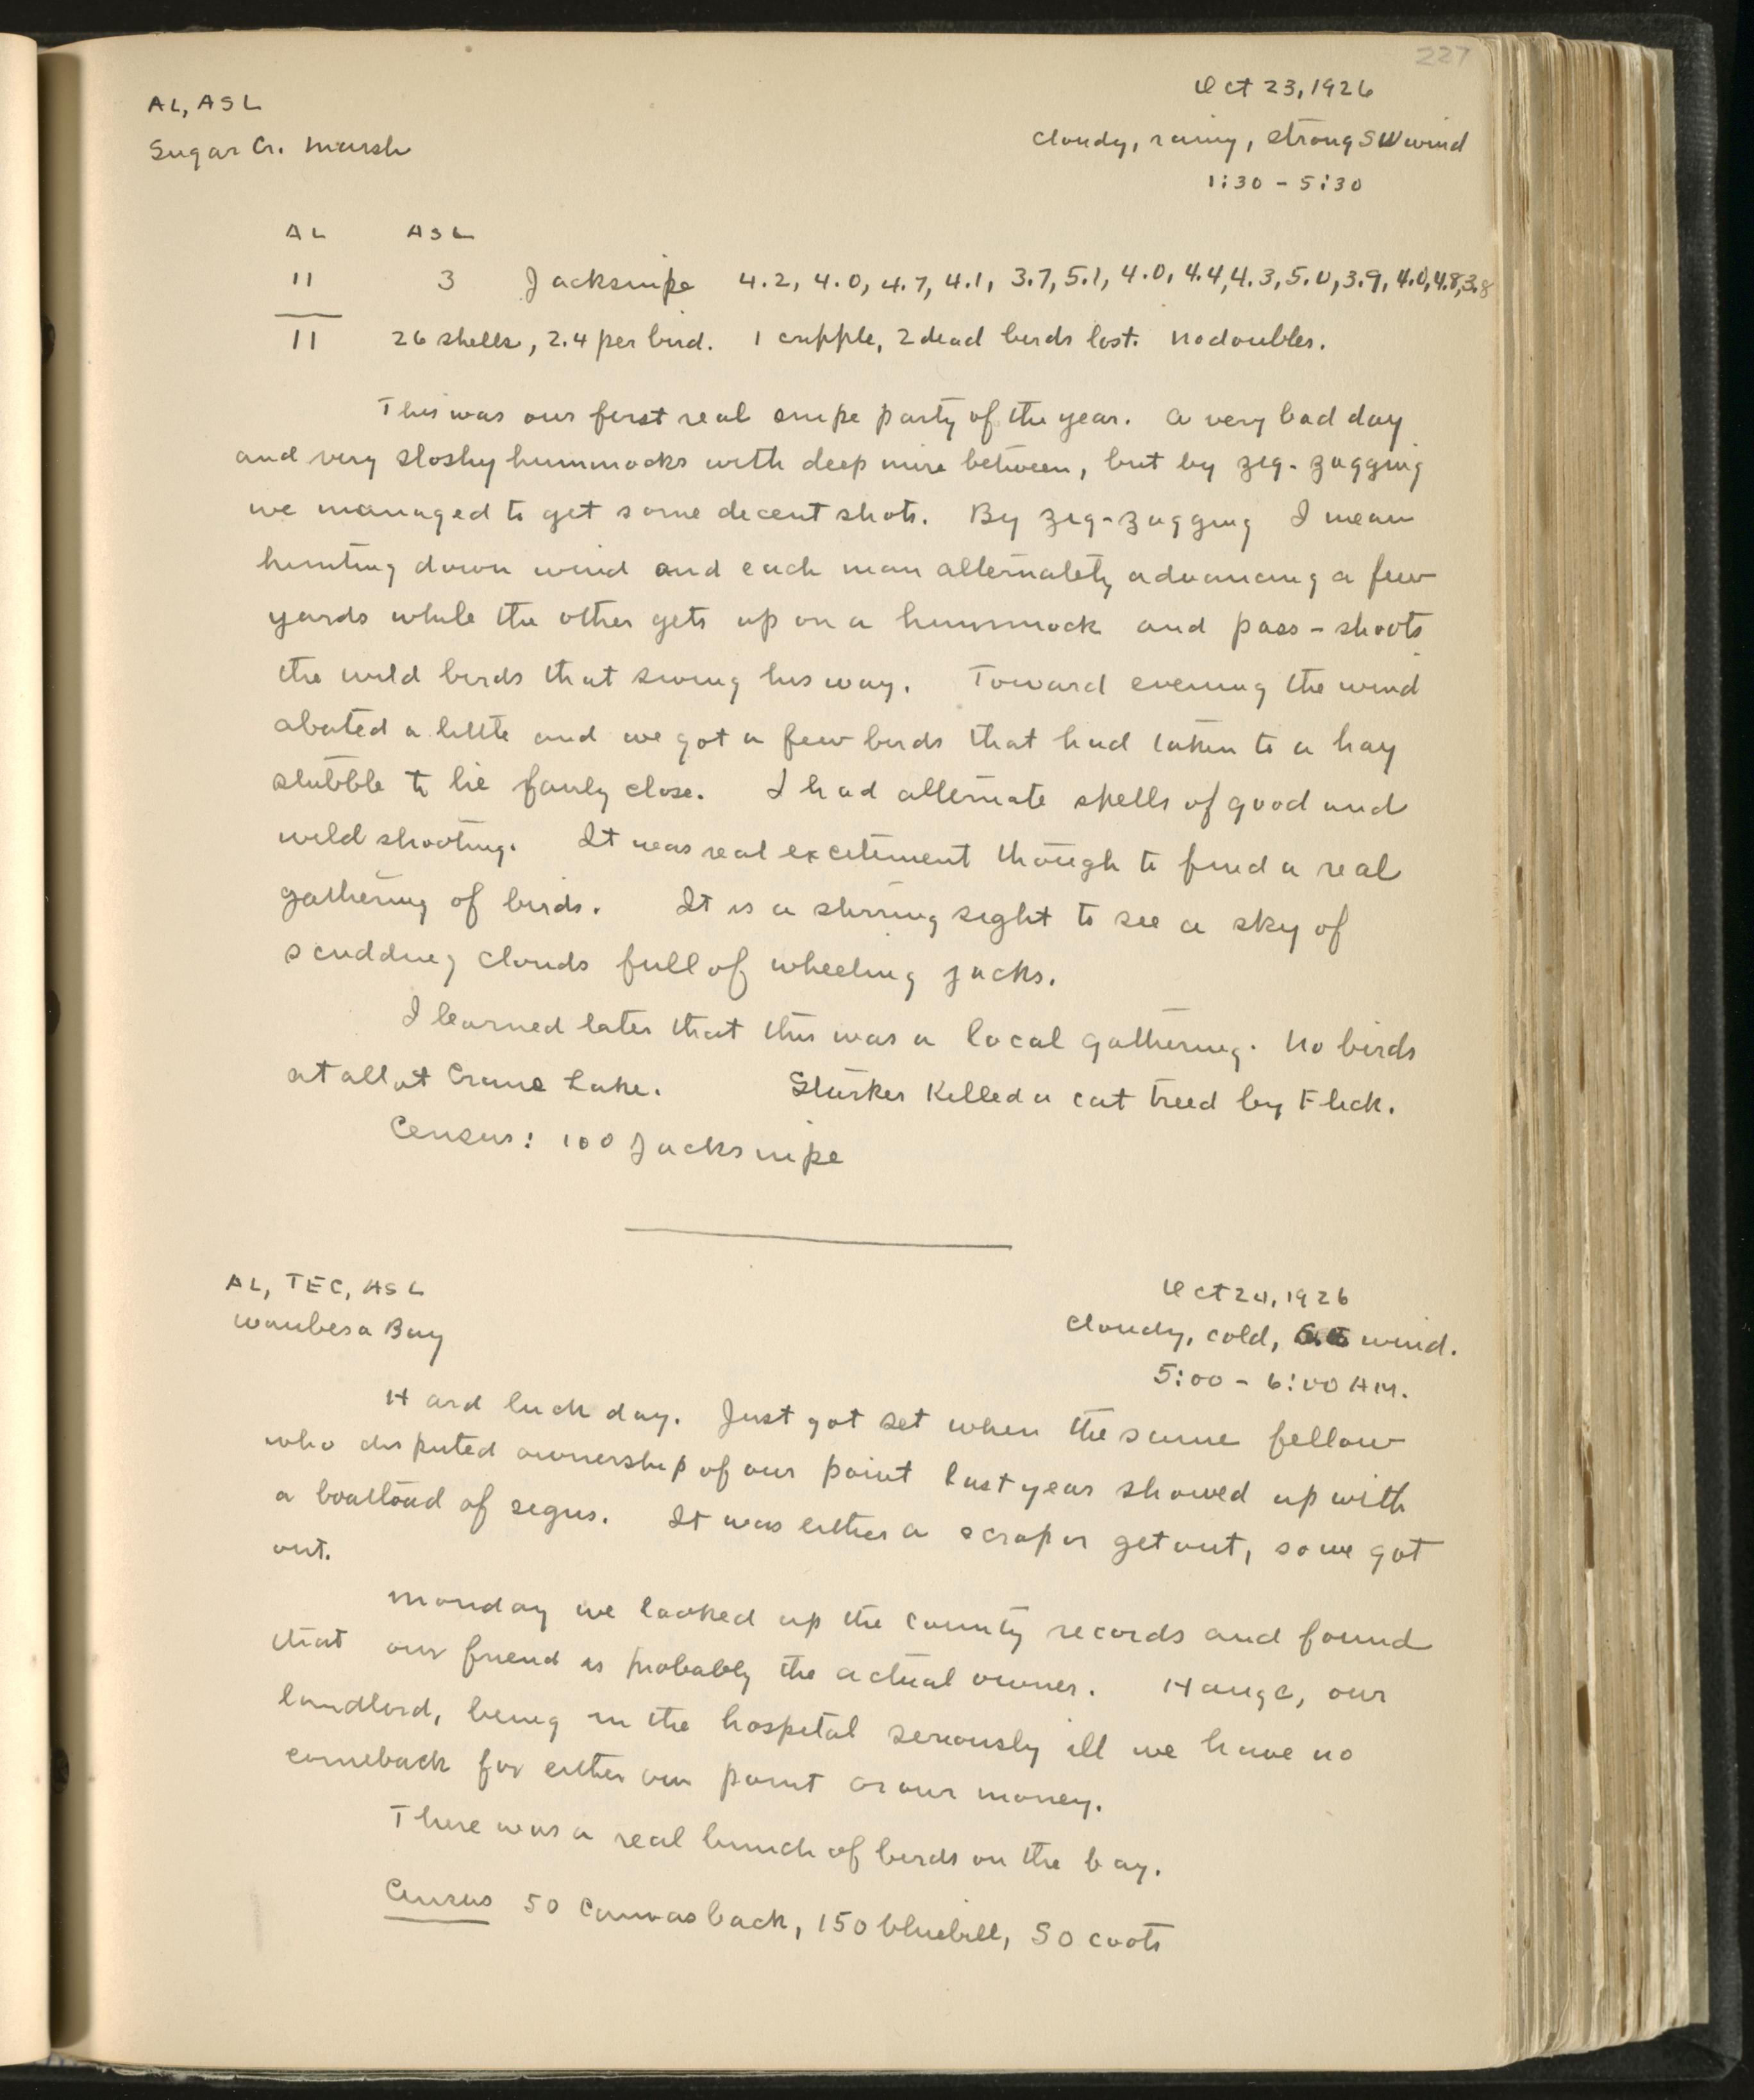 227
AL, ASL
Oct 23, 1926
Sugar Cr. Marsh
Cloudy, rainy, strong SW wind
1:30 - 5:30
AL ASL
11 3 Jacksnipe 4.2, 4.0, 4.7, 4.1, 3.7, 5.1, 4.0, 4.4, 4.3, 5.0, 3.9, 4.0, 4.8, 3.8
11 26 shells, 2.4 per bird. 1 cripple, 2 dead birds lost. No doubles.
This was our first real snipe party of the year. A very bad day
and very sloshy hummocks with deep mire between, but by zig-zagging
we managed to get some decent shots. By zig-zagging I mean
hunting down wind and each man alternately advancing a few
yards while the other gets up on a hummock and pass-shoots
the wild birds that swing his way. Toward evening the wind
abated a little and we got a few birds that had taken to a hay
stubble to lie fairly close. I had alternate spells of good and
wild shooting. It was real excitement though to find a real
gathering of birds. It is a stirring sight to see a sky of
scudding clouds full of wheeling jacks.
I learned later that this was a local gathering. No birds
at all at Crane Lake. Starker killed a cat treed by Flick.
Census: 100 Jacksnipe
AL, TEC, ASL
Oct 24, 1926
Waubesa Bay
Cloudy, cold, wind.
5:00 - 6:00 AM.
Hard luck day. Just got set when the same fellow
who disputed ownership of our point last year showed up with
a boatload of signs. It was either a scrap or get out, so we got
out.
Monday we looked up the county records and found
that our friend is probably the actual owner. Hauge, our
landlord, being in the hospital seriously ill we have no
comeback for either our point or our money.
There was a real bunch of birds on the bay.
Census 50 Canvasback, 150 bluebill, 50 coots